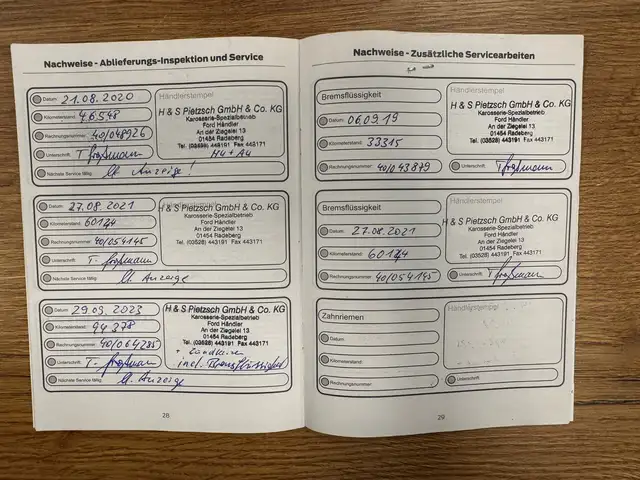 Nachweise - Ablieferungs-Inspektion und Service
Datum: 21.08.2020
Kilometerstand: 46548
Rechnungsnummer: 40/048926
Unterschrift: T. Großmann
Nächste Service fällig: lt. Anzeige!
Händlerstempel
H & S Pietzsch GmbH & Co. KG
Karosserie-Spezialbetrieb
Ford Händler
An der Ziegelei 13
01454 Radeberg
Tel. (03528) 443191 Fax 443171
HU + AU
Datum: 27.08.2021
Kilometerstand: 60124
Rechnungsnummer: 40/054145
Unterschrift: T. Großmann
Nächste Service fällig: lt. Anzeige
Händlerstempel
H & S Pietzsch GmbH & Co. KG
Karosserie-Spezialbetrieb
Ford Händler
An der Ziegelei 13
01454 Radeberg
Tel. (03528) 443191 Fax 443171
Datum: 29.03.2023
Kilometerstand: 94378
Rechnungsnummer: 40/064285
Unterschrift: T. Großmann
Nächste Service fällig: lt. Anzeige
H & S Pietzsch GmbH & Co. KG
Karosserie-Spezialbetrieb
Ford Händler
An der Ziegelei 13
01454 Radeberg
Tel. (03528) 443191 Fax 443171
incl. Bremsflüssigkeit
28
Nachweise - Zusätzliche Servicearbeiten
Bremsflüssigkeit
Datum: 06.09.19
Kilometerstand: 33315
Rechnungsnummer: 40/043879
Händlerstempel
H & S Pietzsch GmbH & Co. KG
Karosserie-Spezialbetrieb
Ford Händler
An der Ziegelei 13
01454 Radeberg
Tel. (03528) 443191 Fax 443171
Unterschrift: T. Großmann
Bremsflüssigkeit
Datum: 27.08.2021
Kilometerstand: 60124
Rechnungsnummer: 40/054145
Händlerstempel
H & S Pietzsch GmbH & Co. KG
Karosserie-Spezialbetrieb
Ford Händler
An der Ziegelei 13
01454 Radeberg
Tel. (03528) 443191 Fax 443171
Unterschrift: T. Großmann
Zahnriemen
Datum:
Kilometerstand:
Rechnungsnummer:
Händlerstempel
Unterschrift:
29